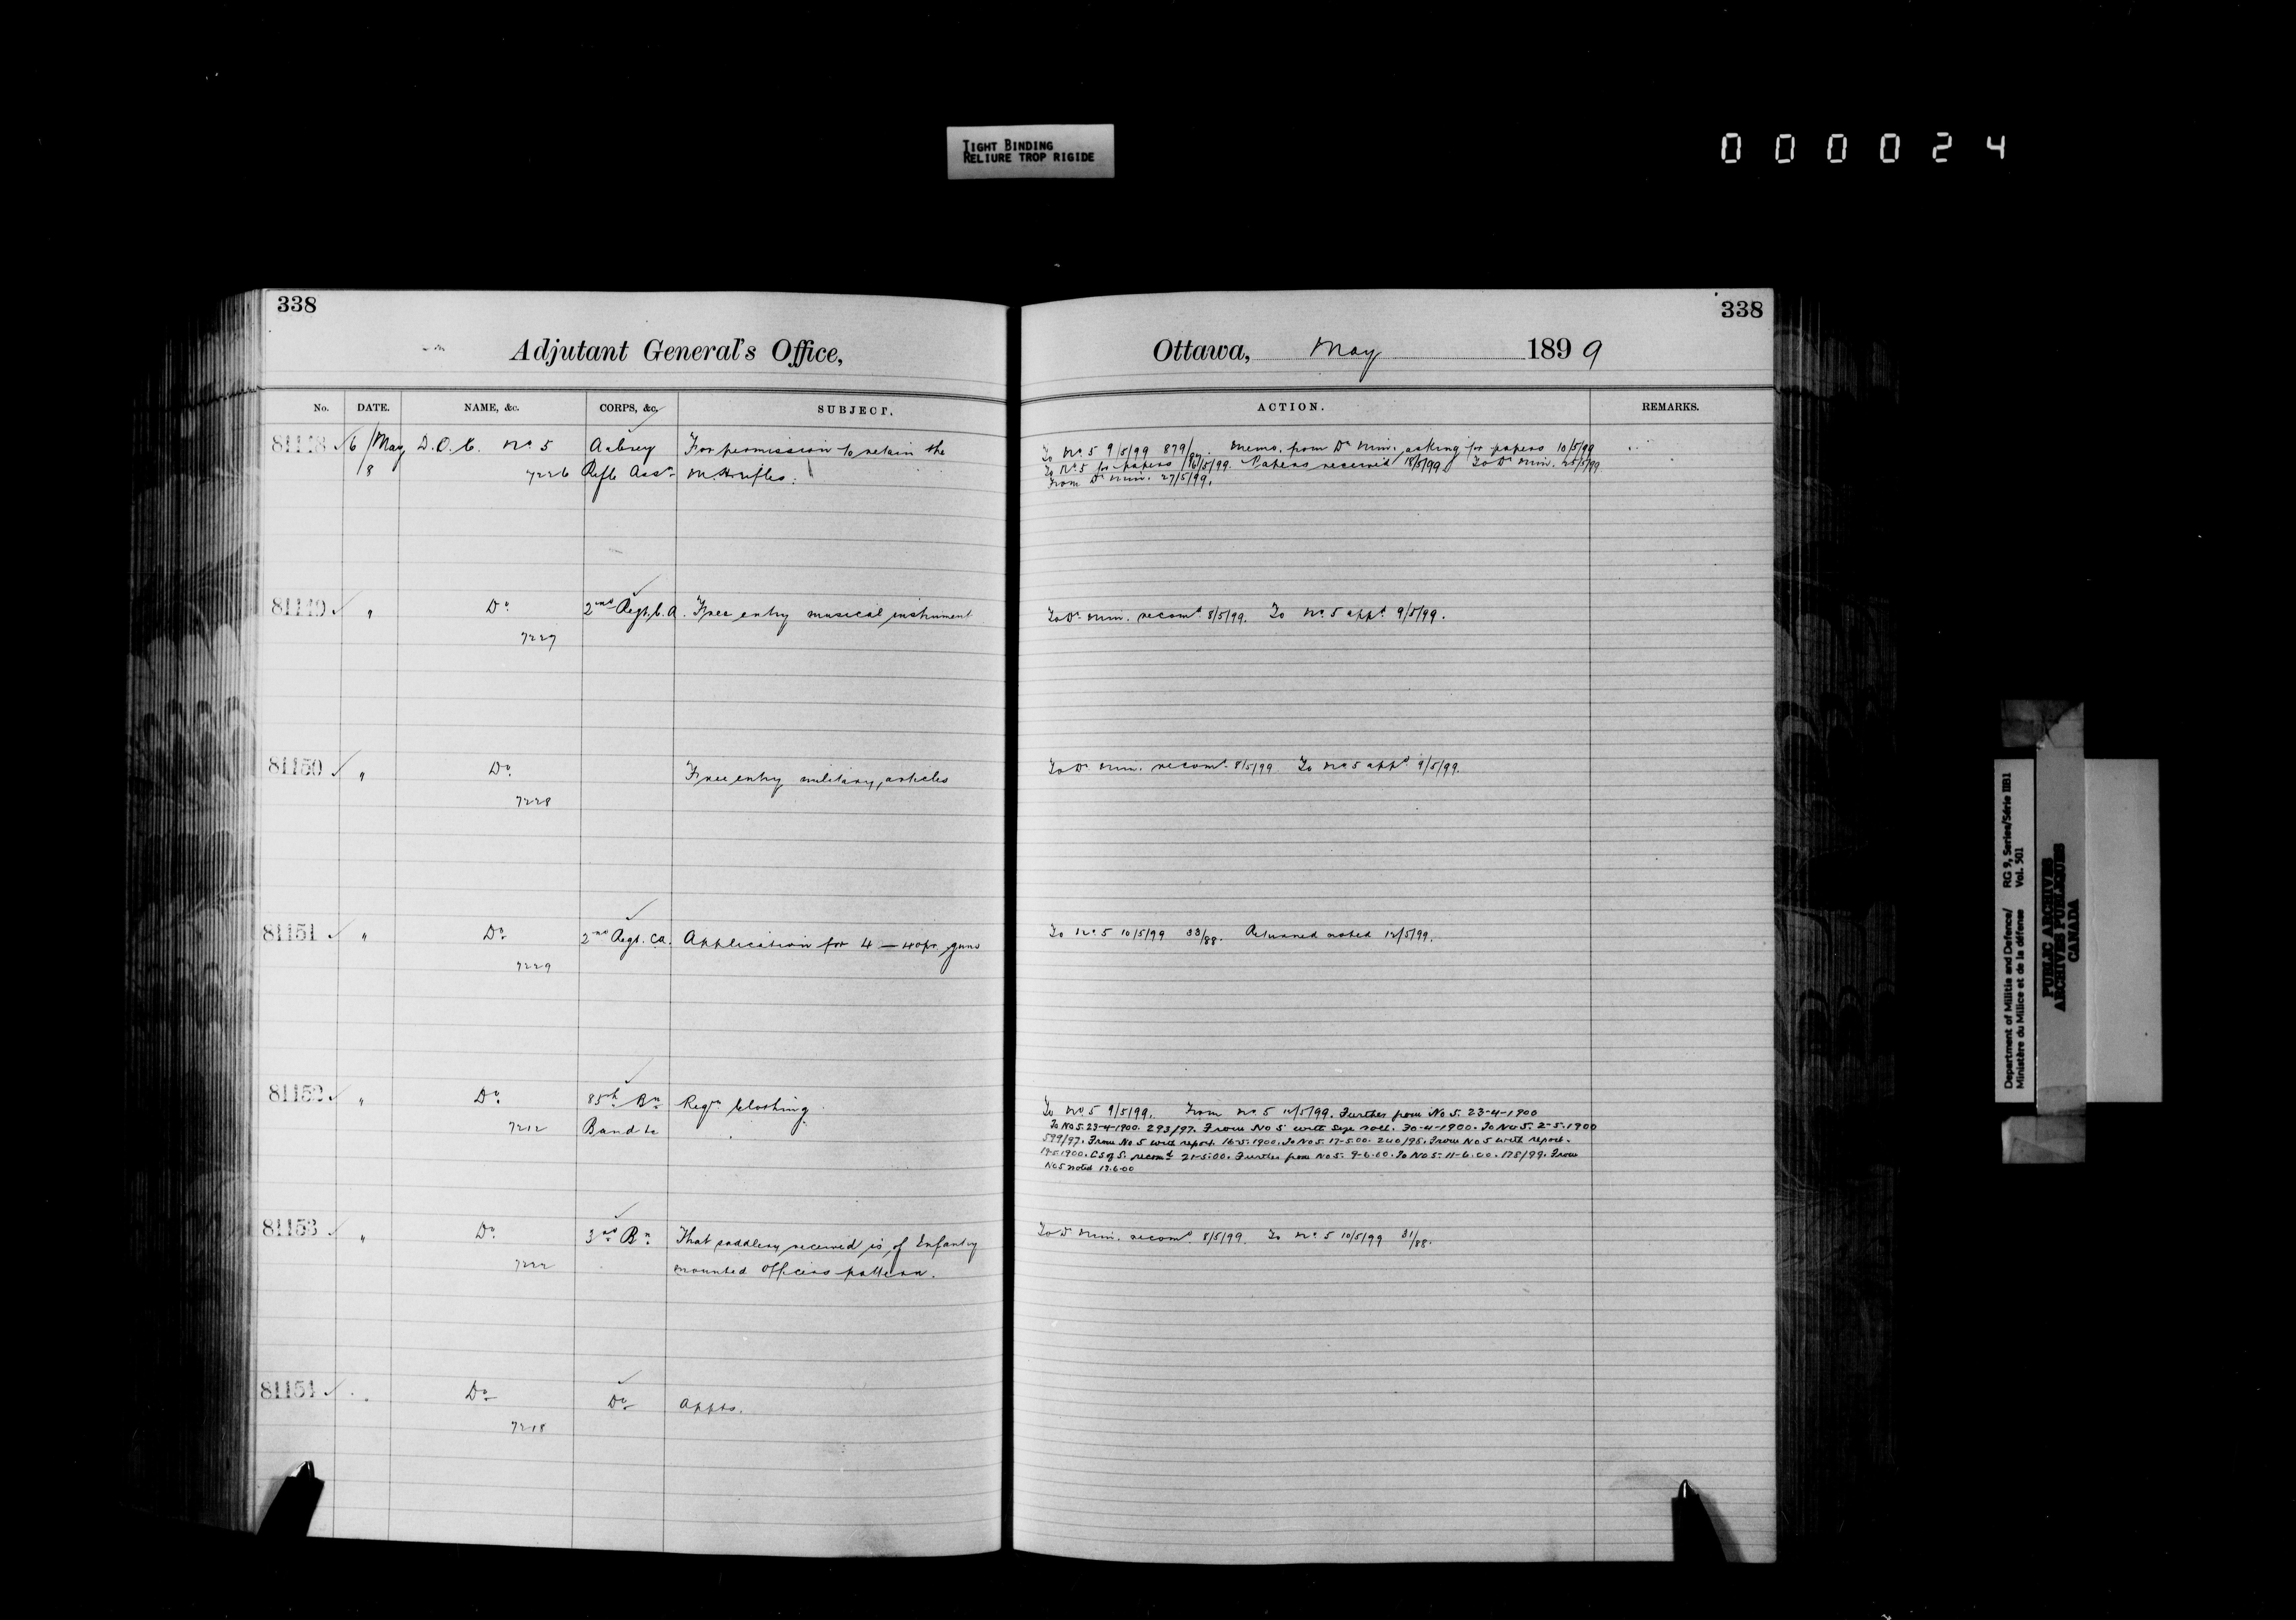 TIGHT BINDING
RELIURE TROP RIGIDE
000024
338
338
Adjutant General's Office,
Ottawa, May 1899
No. DATE. NAME, &c. CORPS, &c. SUBJECT. ACTION. REMARKS.
81148 6/May D.O.C. No 5 Aubrey For permission to retain the
8 7226 Rifle Assn M.H. rifles.
To No 5 9/5/99 879/ Memo. from Dy Min. asking for papers 10/5/99
To No 5 for papers 16/5/99. Papers received 18/5/99. To Dy Min. 25/5/99
From Dy Min. 27/5/99.
81149 " Do 2nd Regt. C.A. Free entry musical instrument
7227
To Dy Min. recomd 8/5/99. To No 5 appd 9/5/99.
81150 " Do Free entry military articles
7228
To Dy Min. recomd 8/5/99 To No 5 appd 9/5/99.
81151 " Do 2nd Regt. C.A. Application for 4 — 40pr. guns
7229
To No 5 10/5/99 33/88. Returned noted 12/5/99.
81152 " Do 85th Bn Reqn clothing.
7212 Band &c
To No 5 9/5/99. From No 5 12/5/99. Further from No 5. 23-4-1900
To No 5. 23-4-1900. 293/97. From No 5 with size roll. 30-4-1900. To No 5. 2-5-1900
599/97. From No 5 with report. 16-5-1900. To No 5. 17-5-00. 240/98. From No 5 with report.
19-5-1900. C.S. of S. recomd 21-5-00. Further from No 5. 9-6-00. To No 5. 11-6-00. 178/99. From
No 5 noted 13-6-00
81153 " Do 3rd Bn That saddlery received is of Infantry
7222 mounted officers pattern.
To Dy Min. recomd 8/5/99. To No 5 10/5/99 31/88.
81154 " Do Do Appts.
7218
Department of Militia and Defence/ RG 9, Series/Série IIB1
Ministère du Milice et de la défense Vol. 501
PUBLIC ARCHIVES
ARCHIVES PUBLIQUES
CANADA